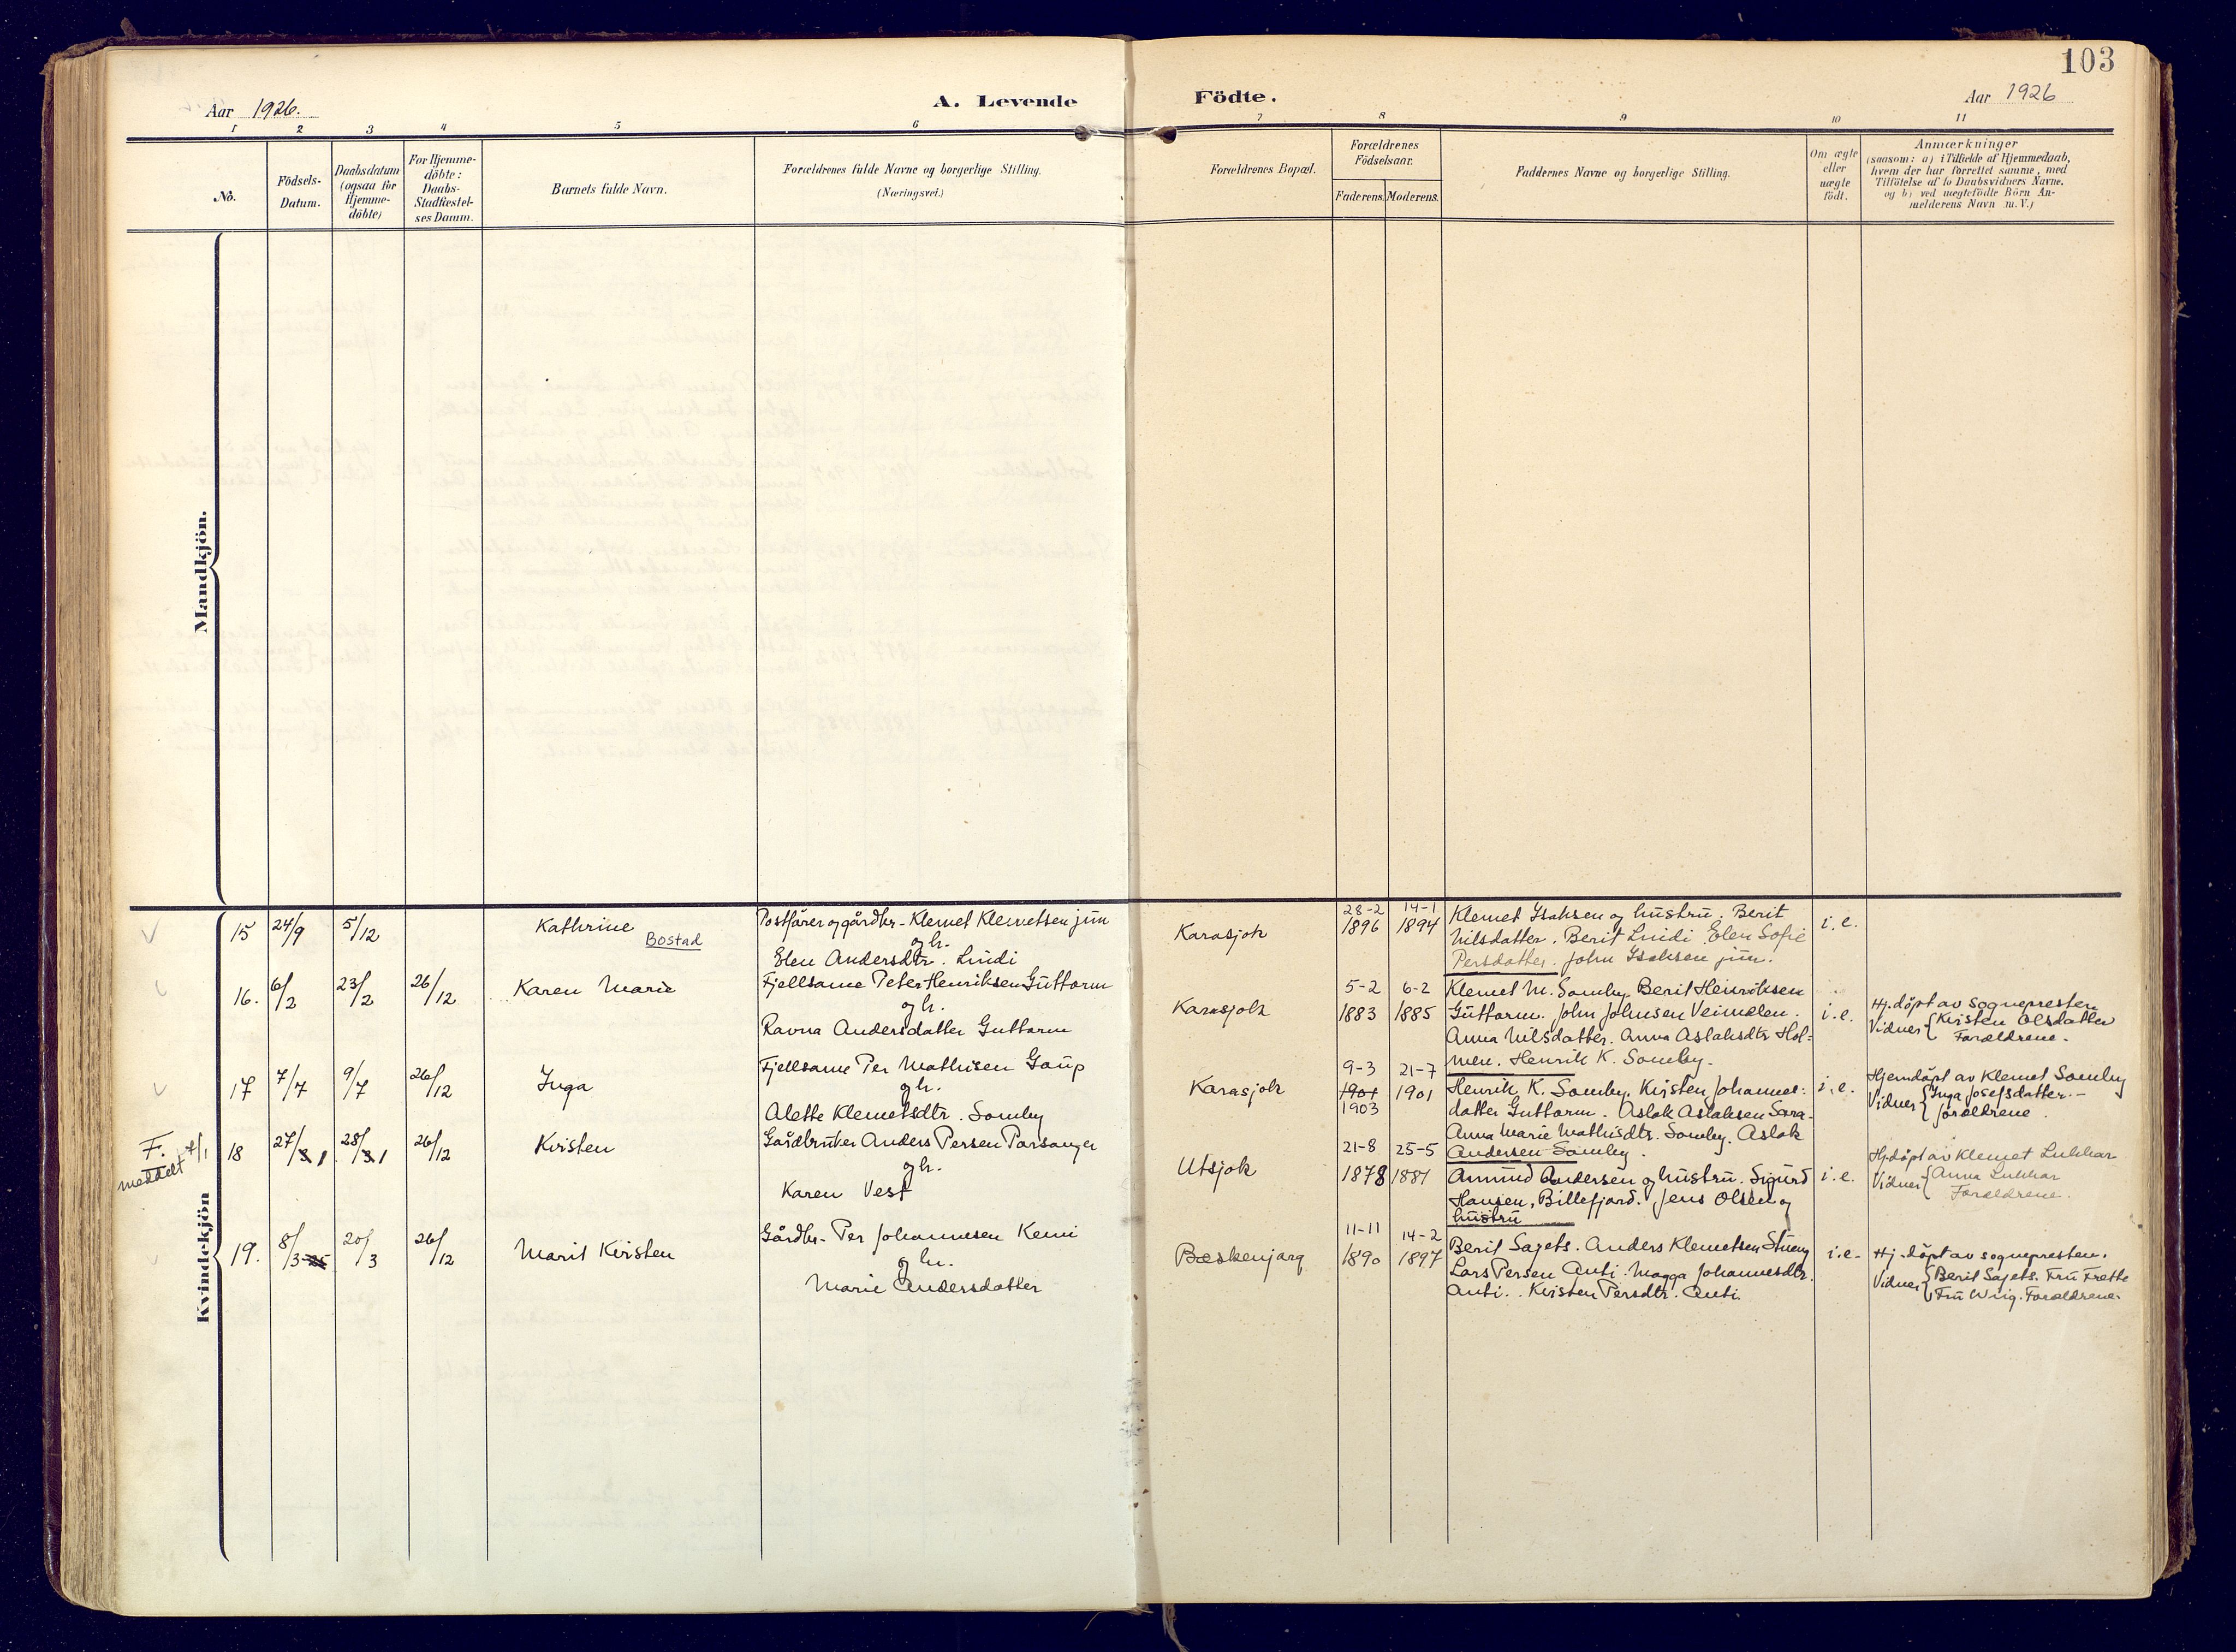 103
Aar 1926.
A. Levende
Födte.
Aar 1926
1 2 3 4 5 6 7 8 9 10 11
No.
Födsels-
Datum.
Daabsdatum
(ogsaa for
Hjemme-
döbte)
For Hjemme-
döbte:
Daabs-
Stadfæstel-
ses Datum.
Barnets fulde Navn.
Forældrenes fulde Navne og borgerlige Stilling.
(Næringsvei.)
Forældrenes Bopæl.
Forældrenes
Födselsaar.
Faderens.
Moderens.
Faddernes Navne og borgerlige Stilling.
Om ægte
eller
uægte
födt.
Anmærkninger
(saasom: a) i Tilfælde af Hjemmedaab,
hvem der har forrettet samme, med
Tilföielse af to Daabsvidners Navne,
og b) ved uægtefödte Börn An-
melderens Navn m. V.)
Mandkjön.
Kvindekjön
15 24/9 5/12
Kathrine
Bostad
Postfører og gårdbr. Klemet Klemetsen jun
og h.
Elen Andersdtr. Lindi
Karasjok
28-2 14-1
1896 1894
Klemet Isaksen og hustru. Berit
Nilsdatter. Berit Lindi. Elen Sofie
Persdatter. John Isaksen jun.
i.e.
16. 6/2 23/2 26/12
Karen Marie
Fjellsame Peter Henriksen Guttorm
og h.
Ravna Andersdatter Guttorm
Karasjok
5-2 6-2
1883 1885
Klemet M. Somby. Berit Henriksen
Guttorm. John Johnsen Veimelen.
Anna Nilsdatter. Anna Aslaksdtr Hol=
men. Henrik K. Somby.
i.e.
Hj. döpt av sognepresten
Vidner { Kirsten Olsdatter
Forældrene.
17 7/7 9/7 26/12
Inga
Fjellsame Per Mathisen Gaup
og h.
Alette Klemetsdtr. Somby
Karasjok
9-3 21-7
1901 1901
1903
Henrik K. Somby. Kirsten Johannes=
datter Guttorm. Aslak Aslaksen Sara.
Anna Marie Mathisdtr. Somby. Aslak
Andersen Somby.
i.e.
Hjemdöpt av Klemet Somby
Vidner { Inga Josefsdatter. -
forældrene.
F. 4/1
meddelt
18 27/3 1 28/3 1 26/12
Kirsten
Gårdbruker Anders Persen Porsanger
og h.
Karen Vest
Utsjok
21-8 25-5
1878 1881
Amund Andersen og hustru. Sigurd
Hansen, Billefjord. Jens Olsen og
hustru
i.e.
Hj. döpt av Klemet Lukkar
Vidner { Anna Lukkar
Forældrene.
19. 8/3-25 20/3 26/12
Marit Kirsten
Gårdbr. Per Johannesen Kemi
og h.
Marie Andersdatter
Bæskenjarg
11-11 14-2
1890 1897
Berit Sajets. Anders Klemetsen Stueng
Lars Persen Anti. Magga Johannesdtr.
Anti. Kirsten Persdtr. Anti.
i.e.
Hj. döpt av sognepresten.
Vidner { Berit Sajets. Fru Frette
Fru Wiig. Forældrene.